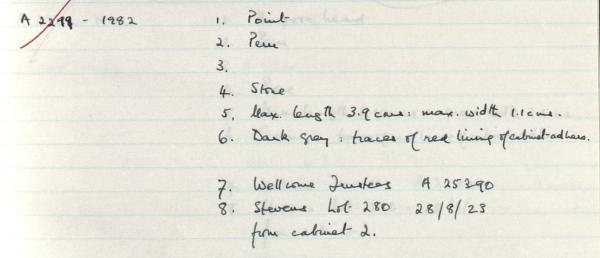 A 2299 - 1982
1. Point
2. Peru
3.
4. Stone
5. Max. length 3.9 cms : max. width 1.1 cms.
6. Dark grey : traces of red lining of cabinet adhere.
7. Wellcome Trustees A 25390
8. Stevens Lot 280 28/8/23
from cabinet 2.